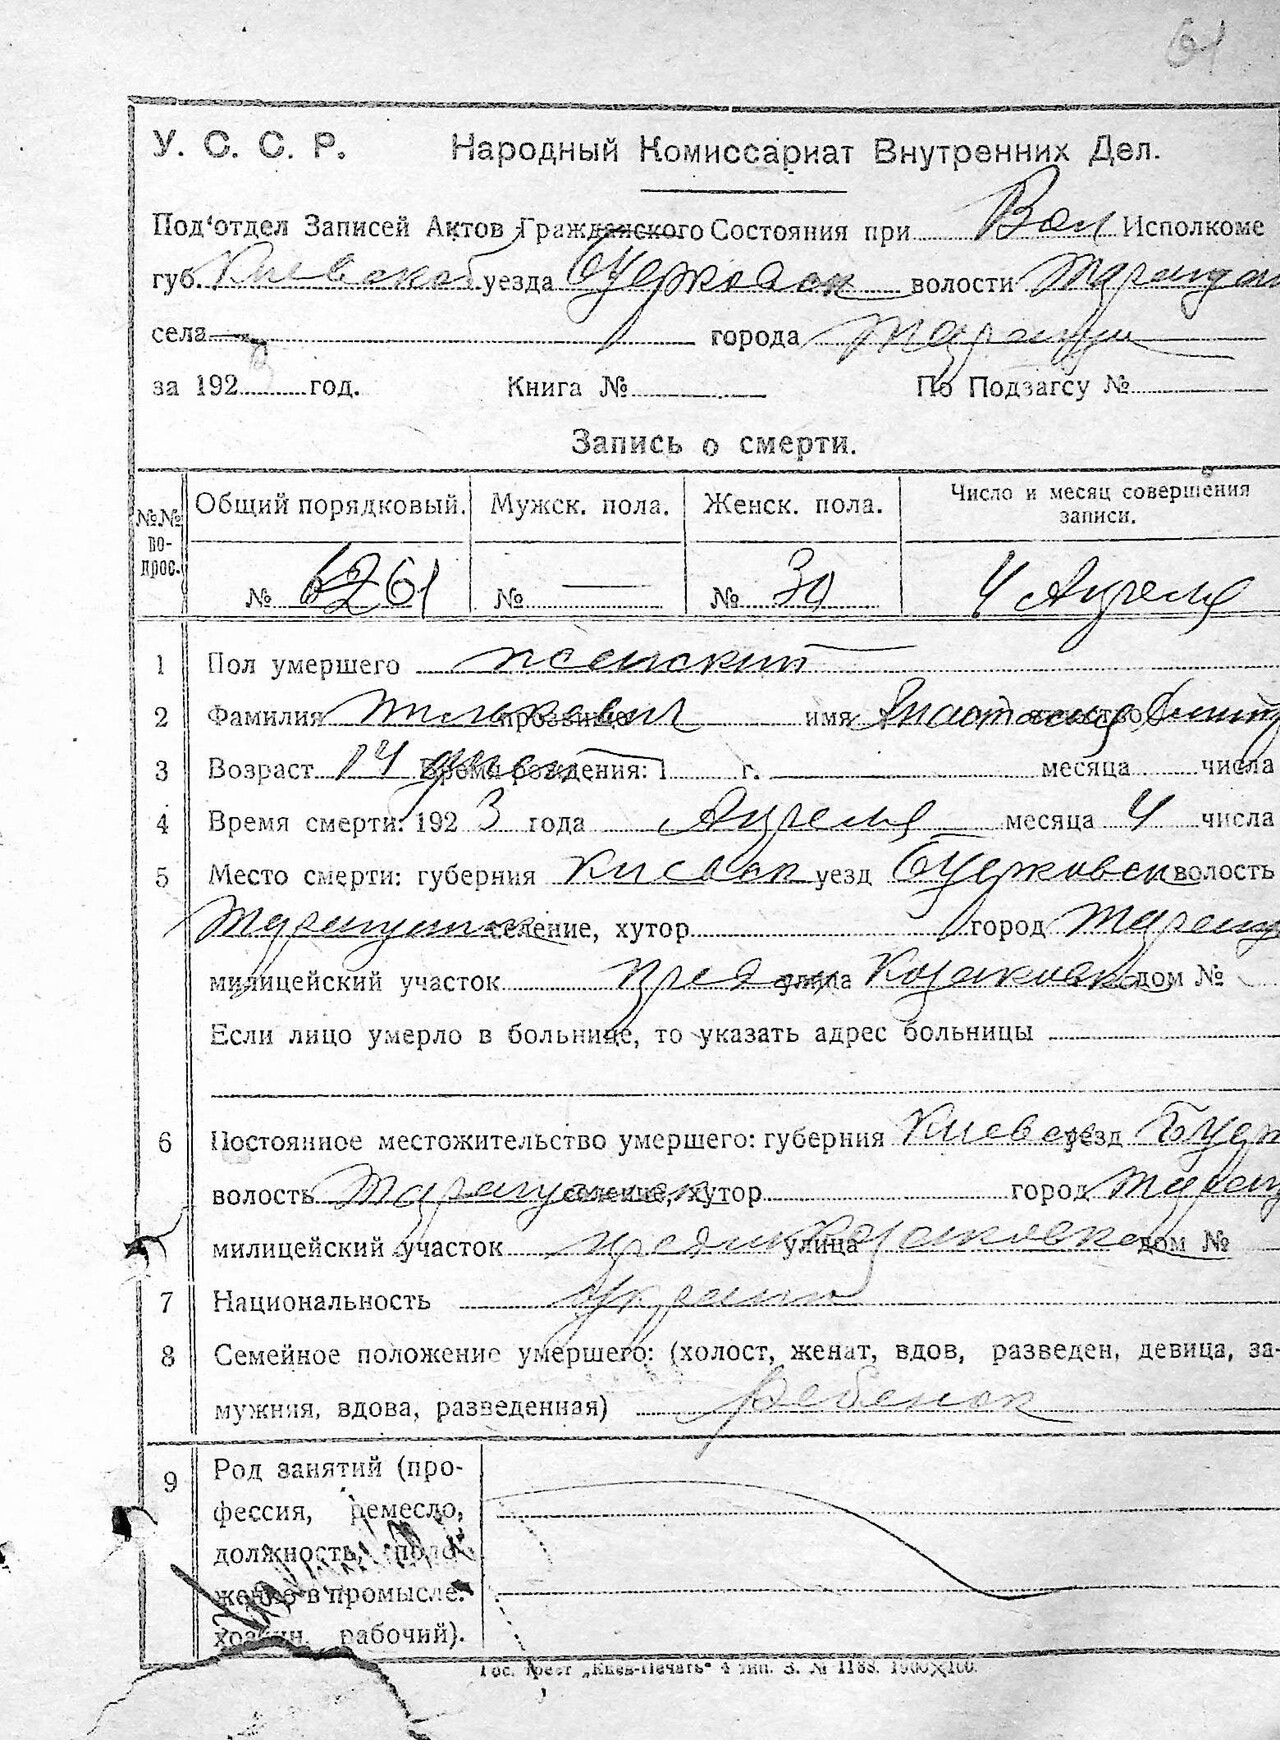 61
У. С. С. Р. Народный Комиссариат Внутренних Дел.
Под‘отдел Записей Актов Гражданского Состояния при Вол Исполкоме
губ. Киевской уезда Бцерковск волости Таращан
села города Таращи
за 192 3 год. Книга № По Подзагсу №
Запись о смерти.
№№ во- прос. Общий порядковый. Мужск. пола. Женск. пола. Число и месяц совершения записи.
№ 6261 № — № 30 4 Апреля
1 Пол умершего женский
2 Фамилия прозвище имя Анастасия отчество Дмитр
3 Возраст 14 дней Время рождения: 1 г. месяца числа
4 Время смерти: 192 3 года Апреля месяца 4 числа
5 Место смерти: губерния Киевск уезд Бцерковск волость
Таращанск селение, хутор город Таращ
милицейский участок улица дом №
Если лицо умерло в больнице, то указать адрес больницы
6 Постоянное местожительство умершего: губерния Киевск уезд Бцерк
волость Таращанск селение, хутор город Таращ
милицейский участок улица дом №
7 Национальность украин
8 Семейное положение умершего: (холост, женат, вдов, разведен, девица, за-
мужняя, вдова, разведенная) ребенок
9 Род занятий (про-
фессия, ремесло,
должность, поло-
жение в промысле:
хозяин, рабочий).
Гос. трест „Киев-Печать“ 4 тип. З. № 1188. 1000×100.